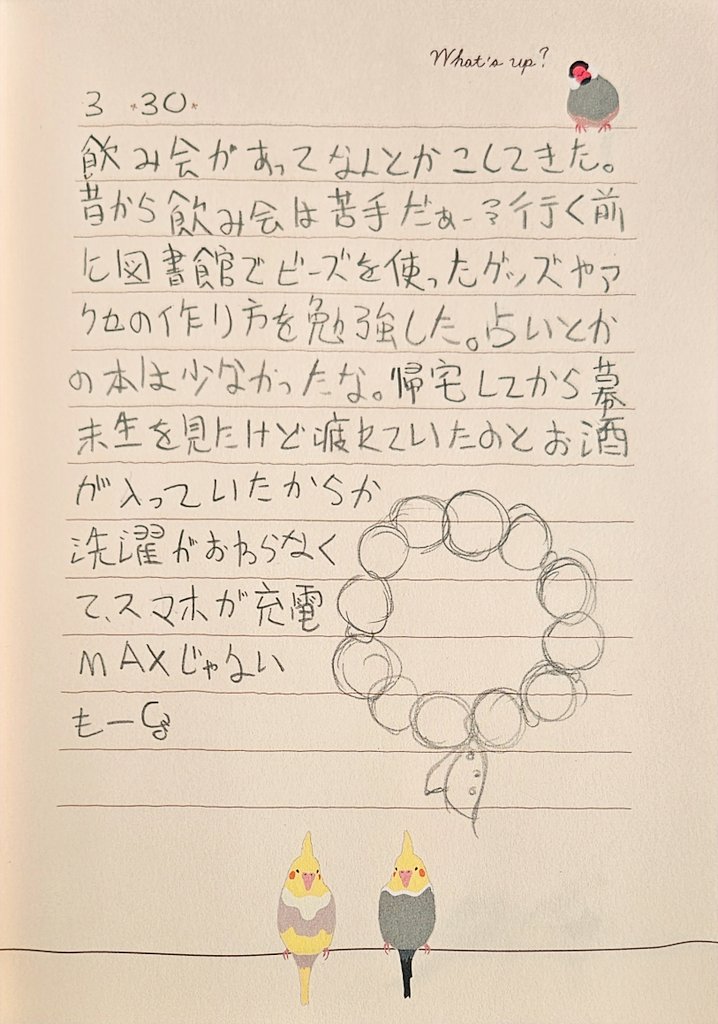 What's up?
3 30
飲み会があってなんとかこしてきた。
昔から飲み会は苦手だぁー 行く前
に図書館でビーズを使ったグッズやア
クセの作り方を勉強した。占いとか
の本は少なかったな。帰宅してから幕
末生を見たけど疲れていたのとお酒
が入っていたからか
洗濯がおわらなく
て、スマホが充電
MAXじゃない
もー